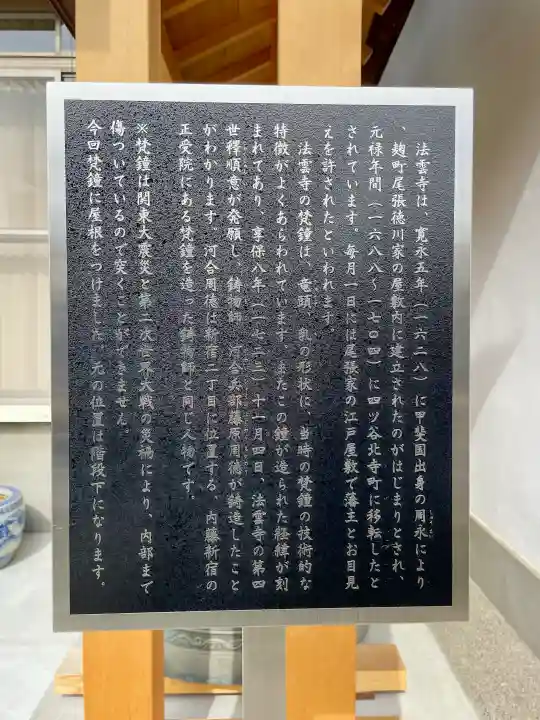 法雲寺は、寛永五年（一六二八）に甲斐国出身の周永により
、麹町尾張徳川家の屋敷内に建立されたのがはじまりとされ、
元禄年間（一六八八〜一七〇四）に四ツ谷北寺町に移転したと
されています。毎月一日には尾張家の江戸屋敷で藩主とお目見
えを許されたといわれます。
法雲寺の梵鐘は、竜頭、乳の形状に、当時の梵鐘の技術的な
特徴がよくあらわれています。またこの鐘が造られた経緯が刻
まれてあり、享保八年（一七二三）十一月四日、法雲寺の第四
世釋順意が発願し、鋳物師 河合兵部藤原周徳が鋳造したこと
がわかります。河合周徳は新宿二丁目に位置する、内藤新宿の
正受院にある梵鐘を造った鋳物師と同じ人物です。
※梵鐘は関東大震災と第二次世界大戦の災禍により、内部まで
傷ついているので突くことができません。
今回梵鐘に屋根をつけました。元の位置は階段下になります。